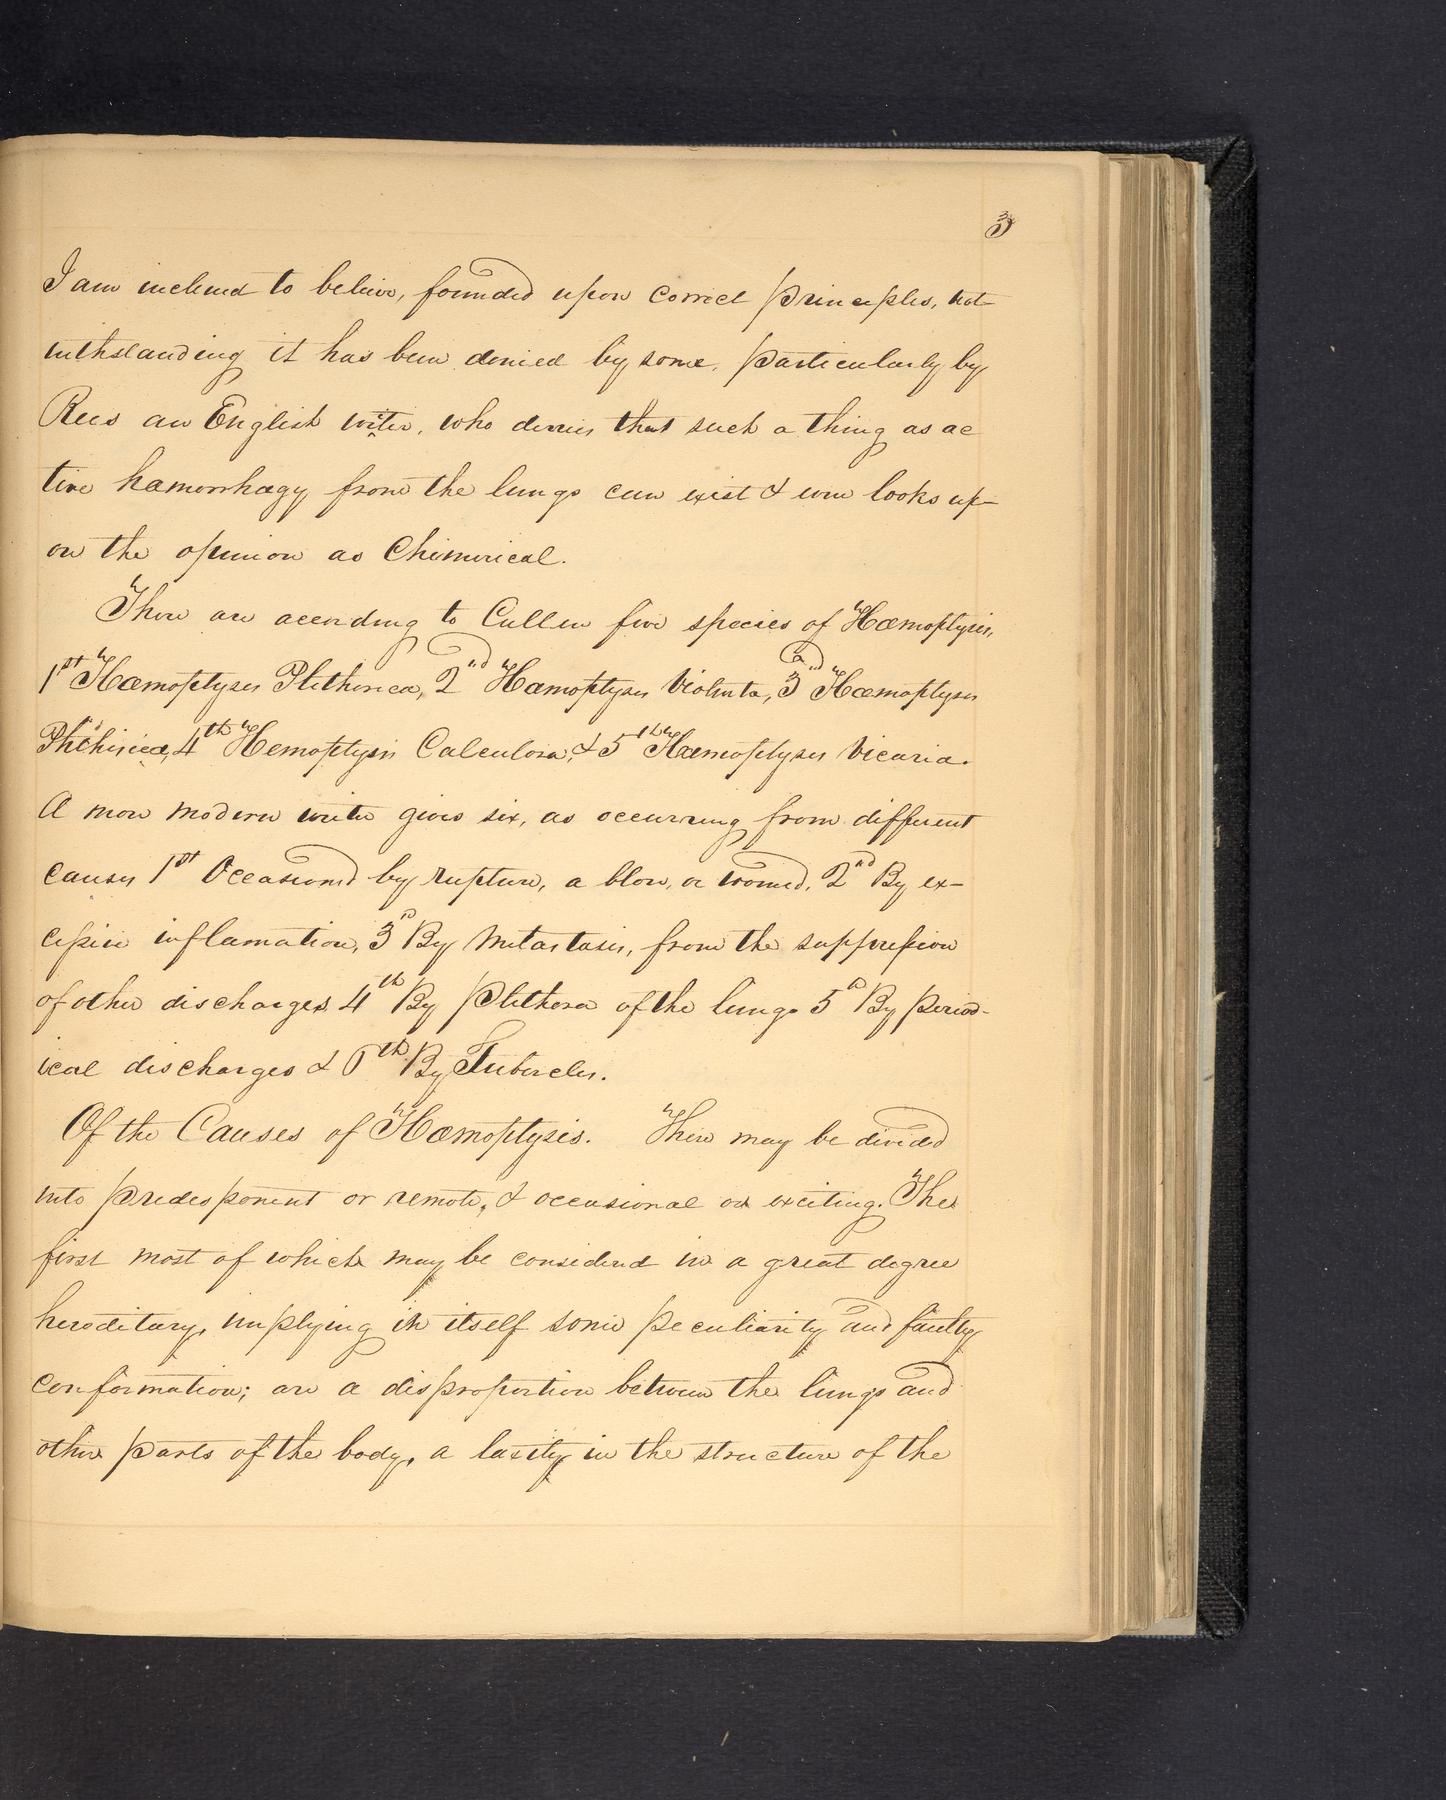 3
I am inclined to believe, founded upon correct principles, not
withstanding it has been denied by some, particularly by
Rees an English writer, who denies that such a thing as ac
tive hæmorrhagy from the lungs can exist & even looks up-
on the opinion as Chimerical.
There are according to Cullen five species of Hæmoptysis,
1st Hæmoptyses Plethorica, 2nd Hæmoptyses Violenta, 3d Hæmoptyses
Phthisica, 4th Hemoptysis Calculosa, & 5th Hæmoptyses Vicaria.
A more modern writer gives six, as occurring from different
causes 1st Occasioned by rupture, a blow, or wound, 2nd By ex-
cessive inflamation, 3d By Metastasis, from the suppression
of other discharges, 4th By Plethora of the lungs 5th By period-
ical discharges & 6th By Tubercles.
Of the Causes of Hæmoptysis. These may be divided
into predesponent or remote, & occasional or exciting. The
first most of which may be considered in a great degree
hereditary, implying in itself some peculiarity and faulty
conformation; are a disproportion between the lungs and
other parts of the body, a laxity in the structure of the